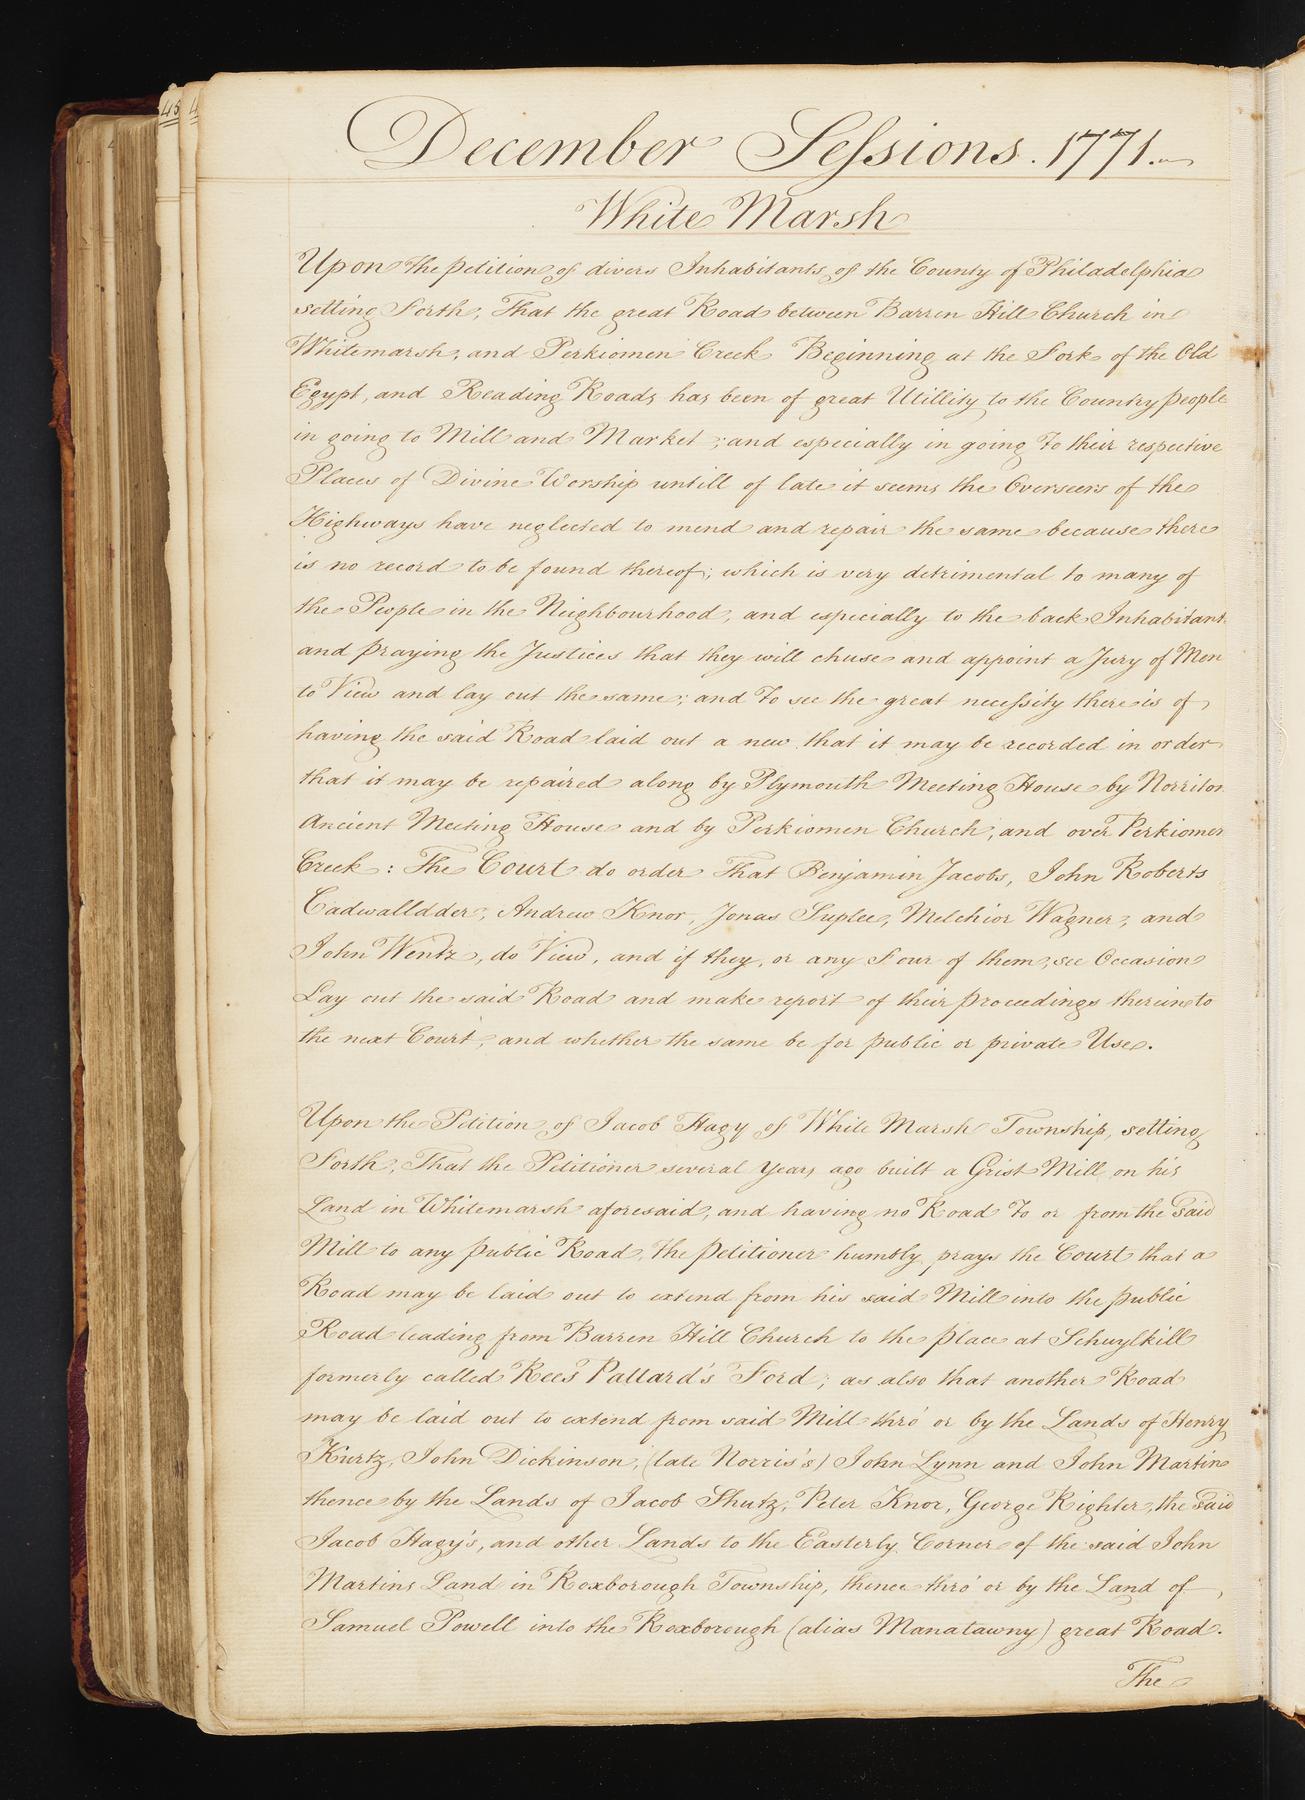 December Sessions. 1771.
White Marsh
Upon the Petition of divers Inhabitants of the County of Philadelphia
setting Forth, That the great Road between Barren Hill Church in
Whitemarsh, and Perkiomen Creek Beginning at the Fork of the Old
Egypt, and Reading Roads has been of great Utillity to the Country people
in going to Mill and Market; and especially in going To their respective
Places of Divine Worship untill of late it seems the Overseers of the
Highways have neglected to mend and repair the same because there
is no record to be found thereof; which is very detrimental to many of
the People in the Neighbourhood, and especially to the back Inhabitant
and praying the Justices that they will chuse and appoint a Jury of Men
to View and lay out the same; and To see the great necessity there is of
having the said Road laid out a new that it may be recorded in order
that it may be repaired along by Plymouth Meeting House by Norriton
Ancient Meeting House and by Perkiomen Church, and over Perkiomen
Creek: The Court do order That Benjamin Jacobs, John Roberts
Cadwalldder, Andrew Knor, Jonas Suplee, Melchior Wagner, and
John Wentz, do View, and if they, or any Four of them, see Occasion
Lay out the said Road and make report of their proceedings therein to
the next Court, and whether the same be for public or private Use.
Upon the Petition of Jacob Hagy of White Marsh Township, setting
Forth, That the Petitioner several Years ago built a Grist Mill on his
Land in Whitemarsh aforesaid, and having no Road To or from the Said
Mill to any public Road, the petitioner humbly prays the Court that a
Road may be laid out to extend from his said Mill into the public
Road leading from Barren Hill Church to the place at Schuylkill
formerly called Rees Pallard's Ford; as also that another Road
may be laid out to extend from said Mill thro' or by the Lands of Henry
Kurtz, John Dickinson, (late Norris's) John Lynn and John Martin
thence by the Lands of Jacob Shutz, Peter Knor, George Righter, the Said
Jacob Hagy's, and other Lands to the Easterly Corner of the said John
Martins Land in Roxborough Township, thence thro' or by the Land of
Samuel Powell into the Roxborough (alias Manatawny) great Road.
The